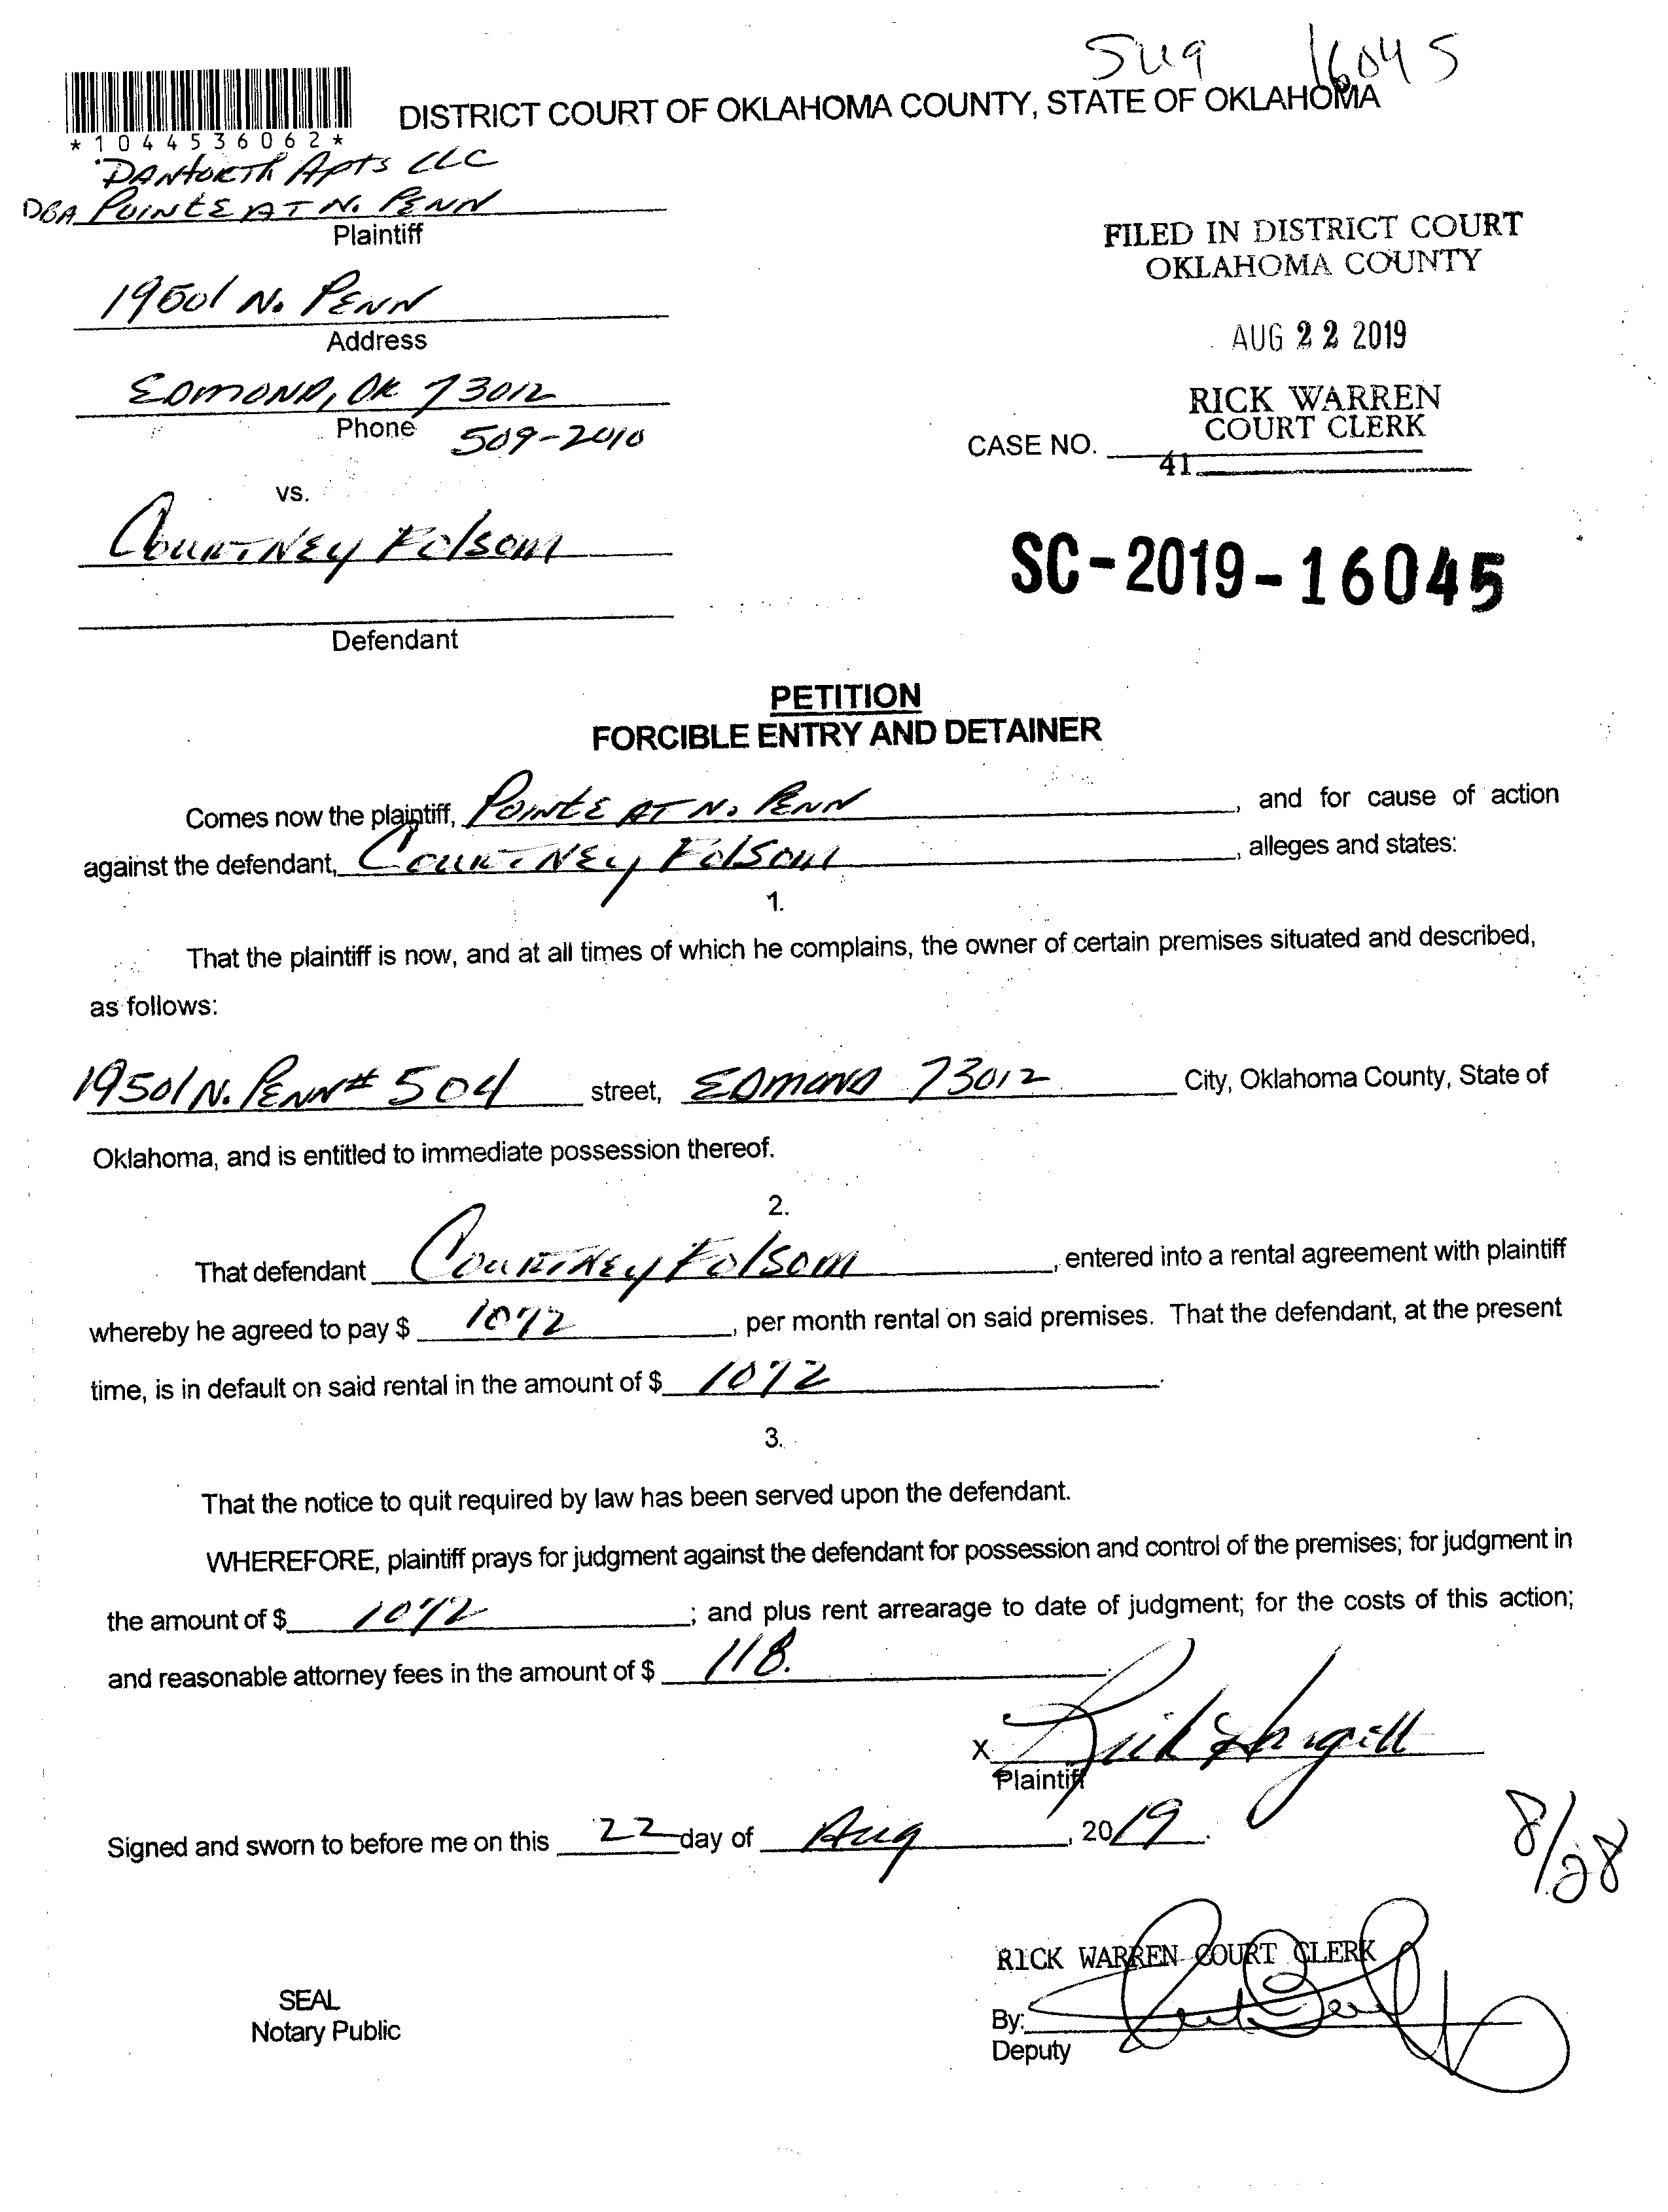 sug 16045
DISTRICT COURT OF OKLAHOMA COUNTY, STATE OF OKLAHOMA
*1044536062*
DANFORTH APTS LLC
DBA POINTE AT N. PENN
Plaintiff
FILED IN DISTRICT COURT
OKLAHOMA COUNTY
19501 N. PENN
Address
AUG 22 2019
EDMOND, OK 73012
RICK WARREN
COURT CLERK
Phone 509-2010
CASE NO.
41
vs.
COURTNEY FOLSOM
SC-2019-16045
Defendant
PETITION
FORCIBLE ENTRY AND DETAINER
Comes now the plaintiff, POINTE AT N. PENN, and for cause of action
against the defendant, COURTNEY FOLSOM, alleges and states:
1.
That the plaintiff is now, and at all times of which he complains, the owner of certain premises situated and described,
as follows:
19501 N. PENN # 504 street, EDMOND 73012 City, Oklahoma County, State of
Oklahoma, and is entitled to immediate possession thereof.
2.
That defendant COURTNEY FOLSOM, entered into a rental agreement with plaintiff
whereby he agreed to pay $ 1072, per month rental on said premises. That the defendant, at the present
time, is in default on said rental in the amount of $ 1072.
3.
That the notice to quit required by law has been served upon the defendant.
WHEREFORE, plaintiff prays for judgment against the defendant for possession and control of the premises; for judgment in
the amount of $ 1072; and plus rent arrearage to date of judgment; for the costs of this action;
and reasonable attorney fees in the amount of $ 118.
X Rick Hargill
Plaintiff
Signed and sworn to before me on this 22 day of Aug, 2019.
8/28
RICK WARREN COURT CLERK
SEAL
Notary Public
By:
Deputy